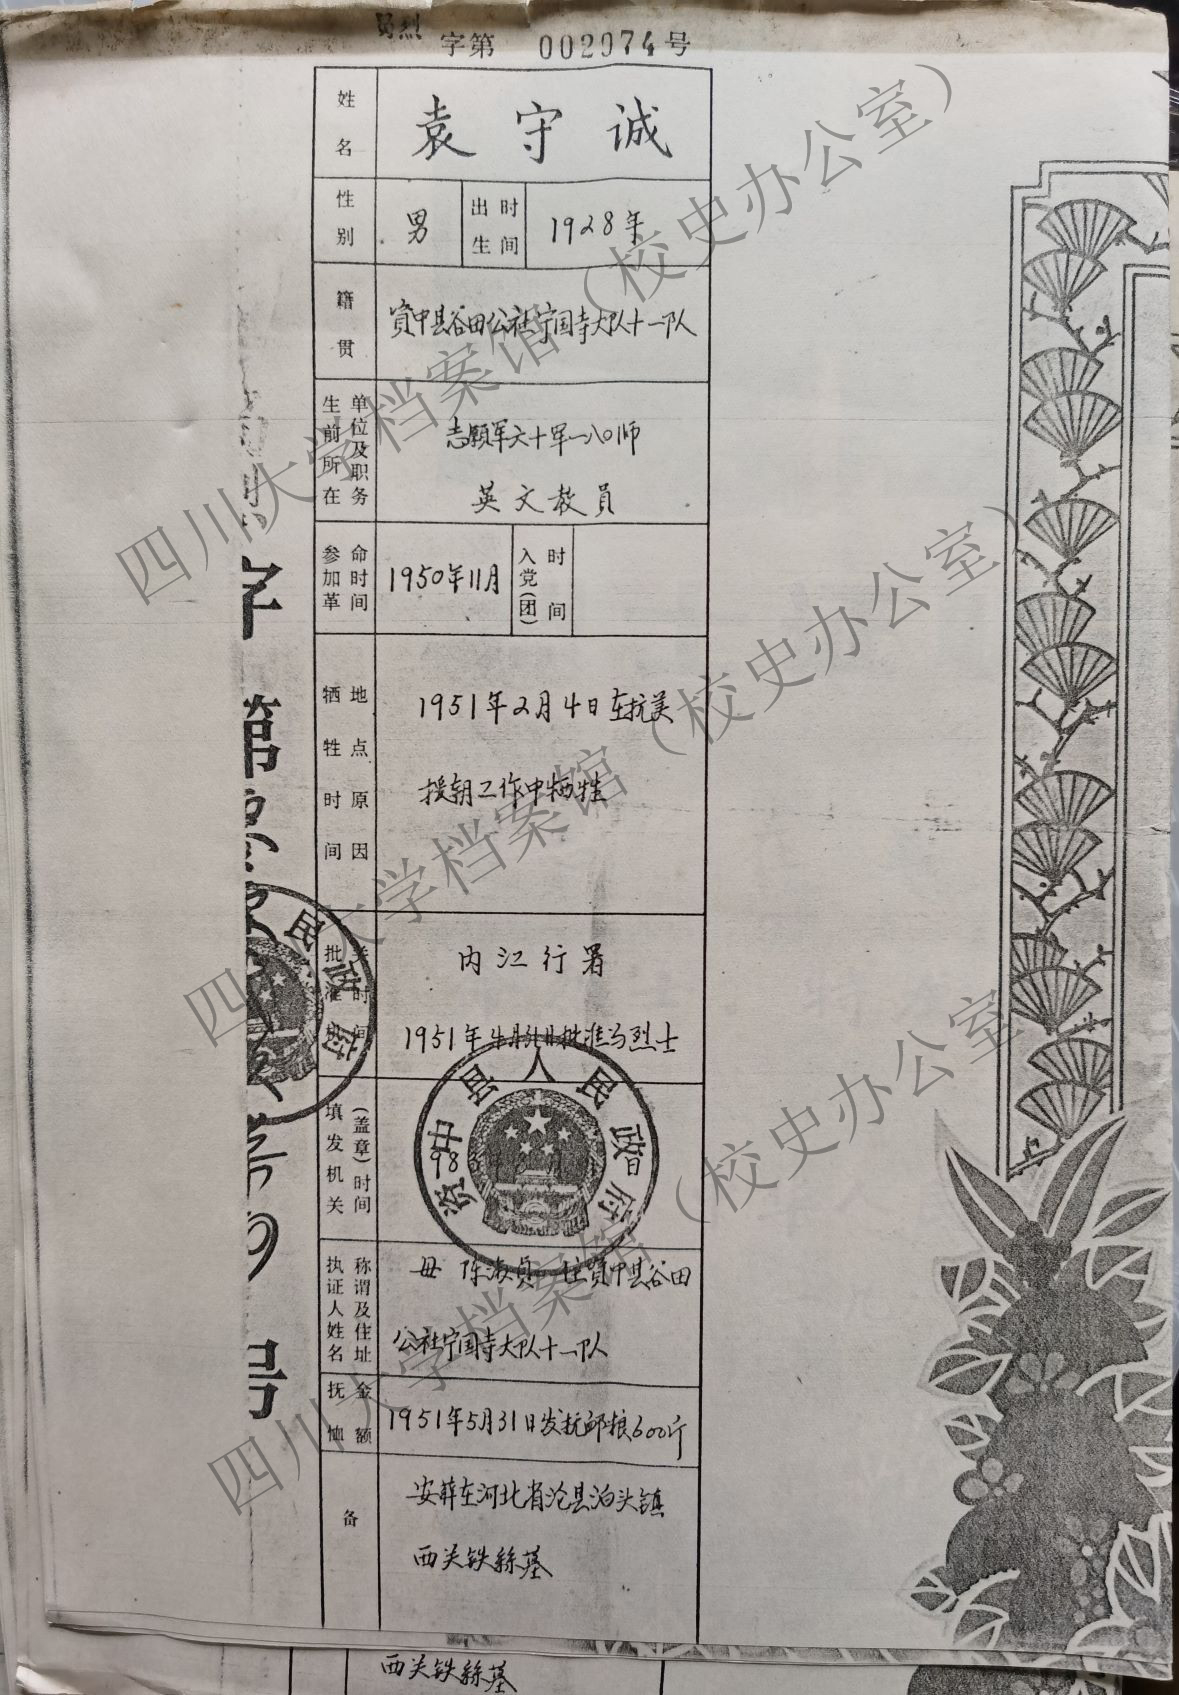 字第 002974号
姓名 袁守诚
性别 男 出生时间 1928年
籍贯 资中县谷田公社宁国寺大队十一队
生前所在单位及职务 志愿军六十军一八〇师
英文教员
参加革命时间 1950年11月 入党(团)时间
牺牲时间地点原因 1951年2月4日在抗美
援朝工作中牺牲
批准机关时间 内江行署
1951年 批准为烈士
填发机关(盖章)时间
资中县人民政府
执证人姓名称谓及住址 母 陈淑贞 住资中县谷田
公社宁国寺大队十一队
抚恤金额 1951年5月31日发抚邮粮600斤
备 安葬在河北省沧县泊头镇
西关铁絲基
西关铁絲基
字第
号
民政府
四川大学档案馆（校史办公室）
四川大学档案馆（校史办公室）
四川大学档案馆（校史办公室）